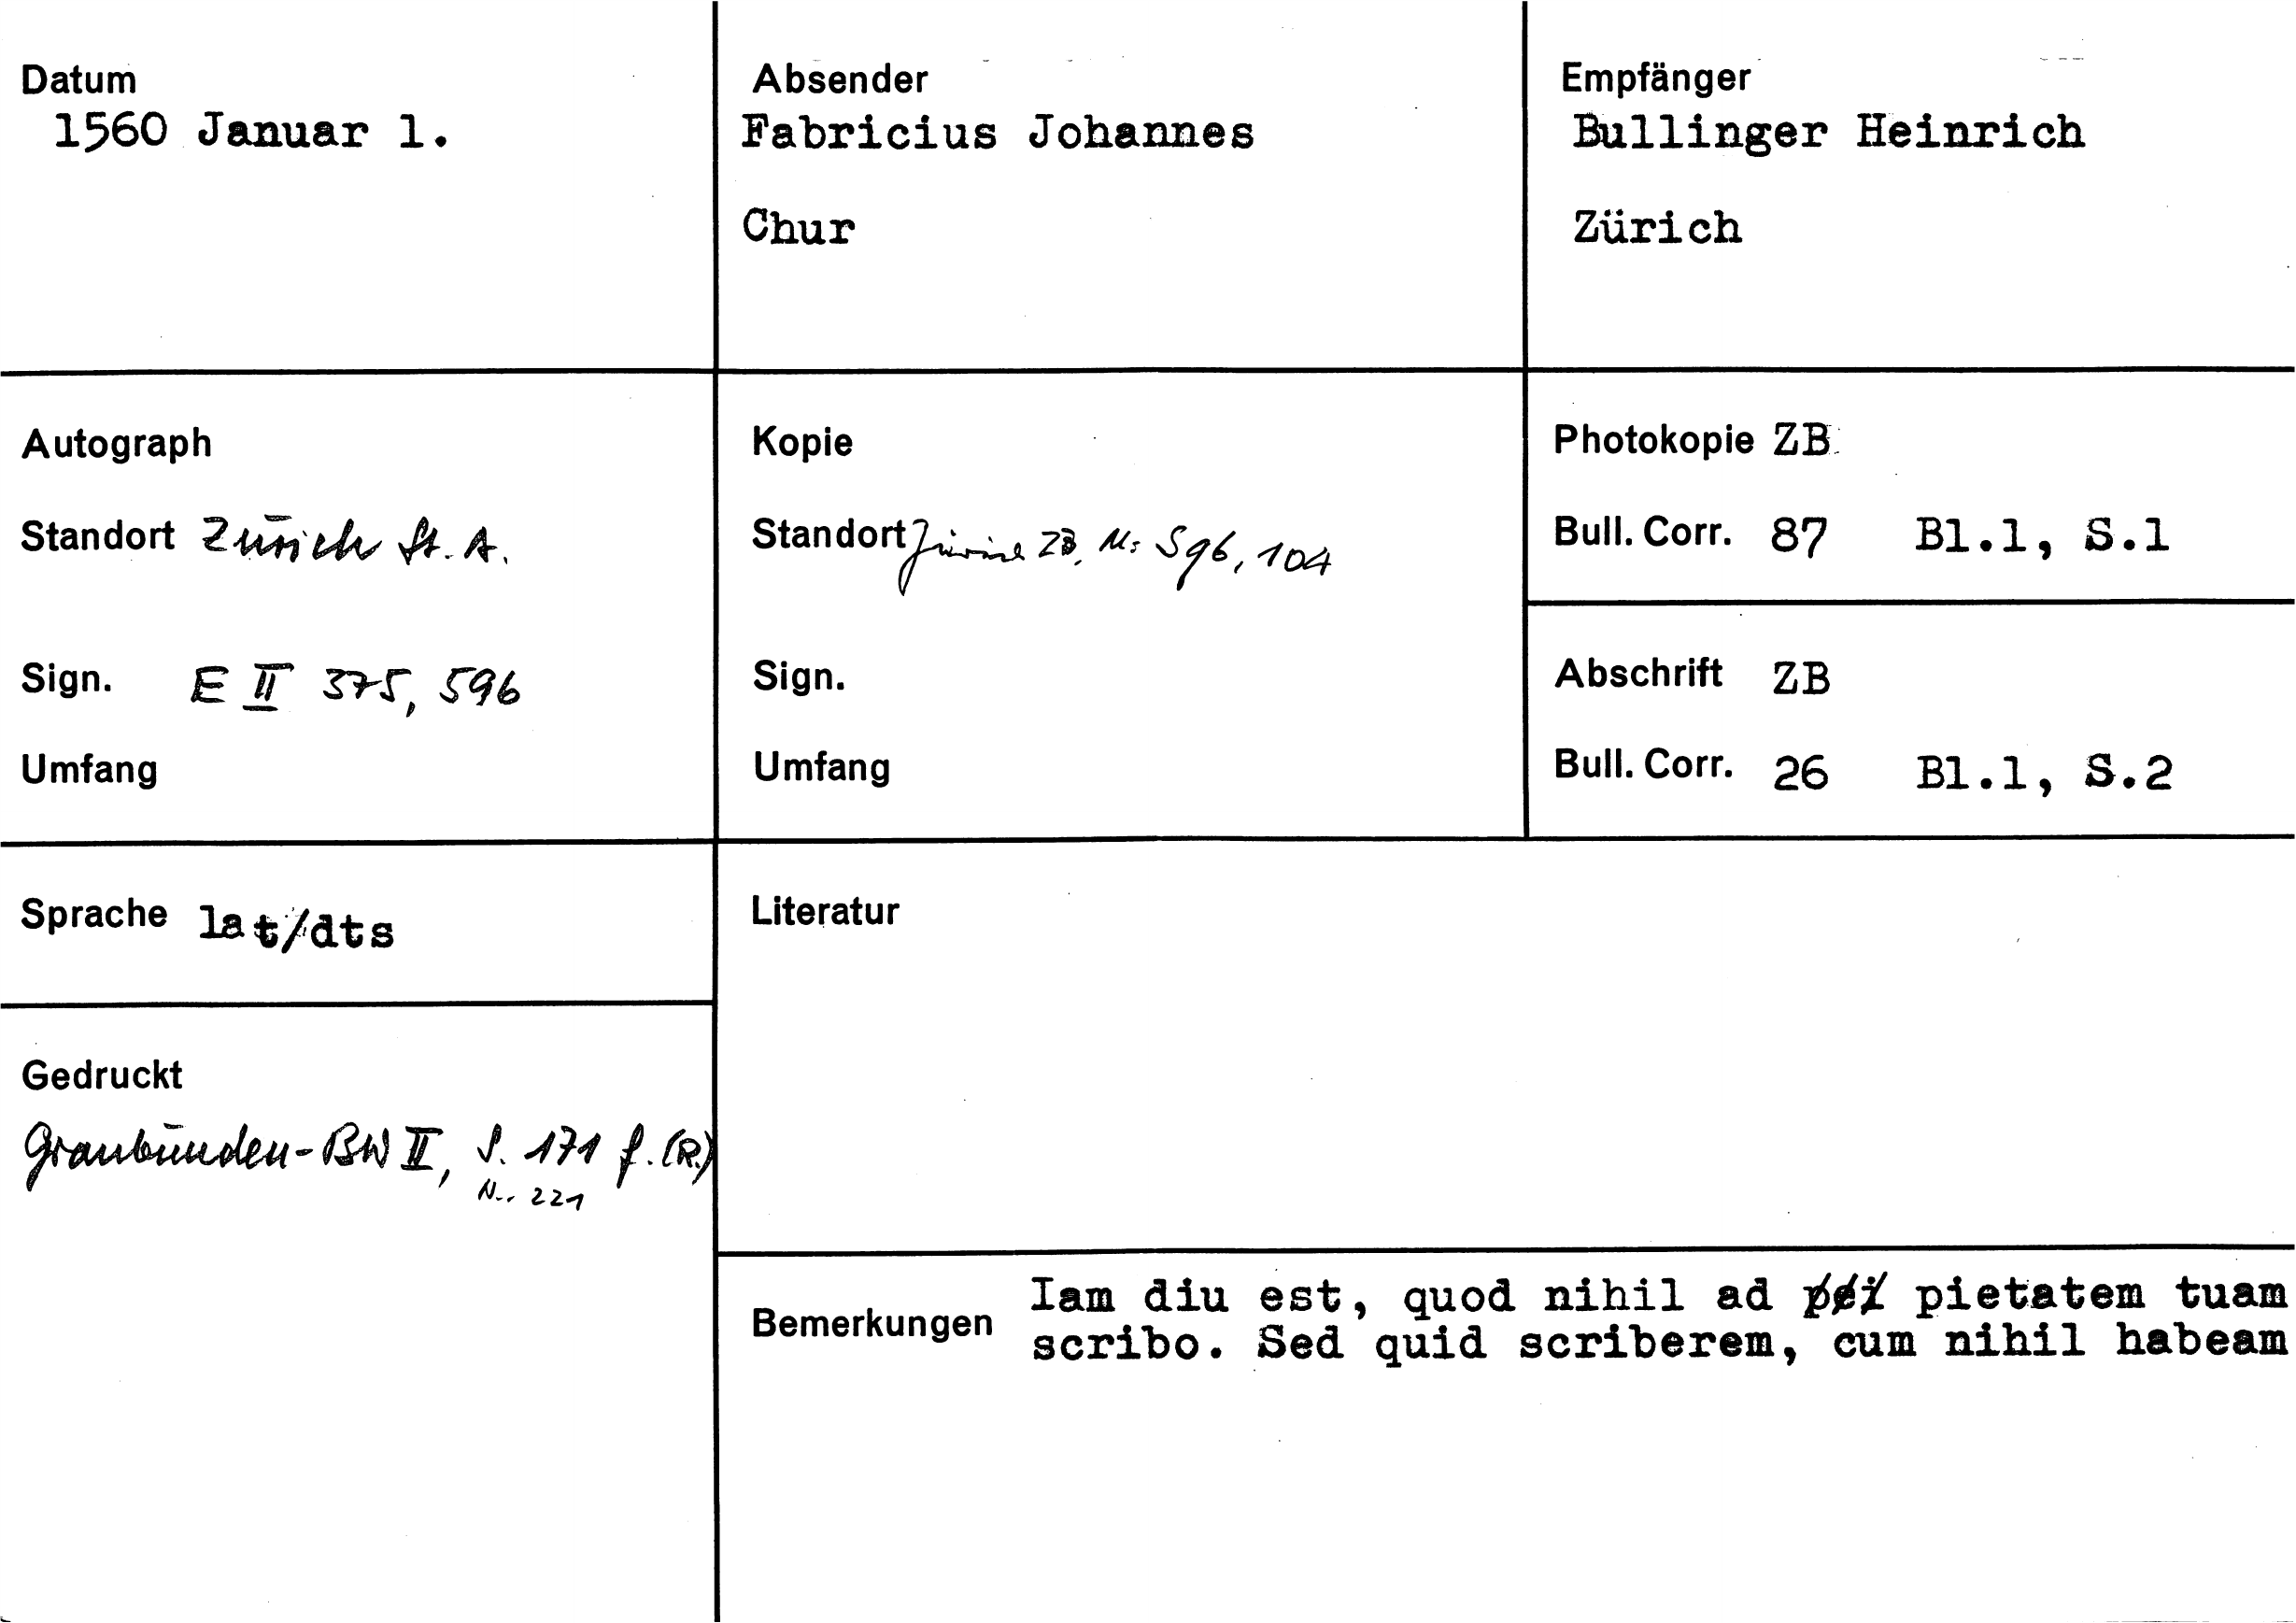 Datum
1560 Januar 1.
Absender
Fabricius Johannes
Chur
Empfänger
Bullinger Heinrich
Zürich
Autograph
Standort Zürich St. A.
Sign. E II 375, 596
Umfang
Kopie
Standort Zürich ZB, Ms S 96, 104
Sign.
Umfang
Photokopie ZB
Bull. Corr. 87 Bl.1, S.1
Abschrift ZB
Bull. Corr. 26 Bl.1, S.2
Sprache lat/dts
Literatur
Gedruckt
Graubünden-BW II, S. 171 f. (R.)
Nr. 221
Bemerkungen
Iam diu est, quod nihil ad pietatem tuam
scribo. Sed quid scriberem, cum nihil habeam